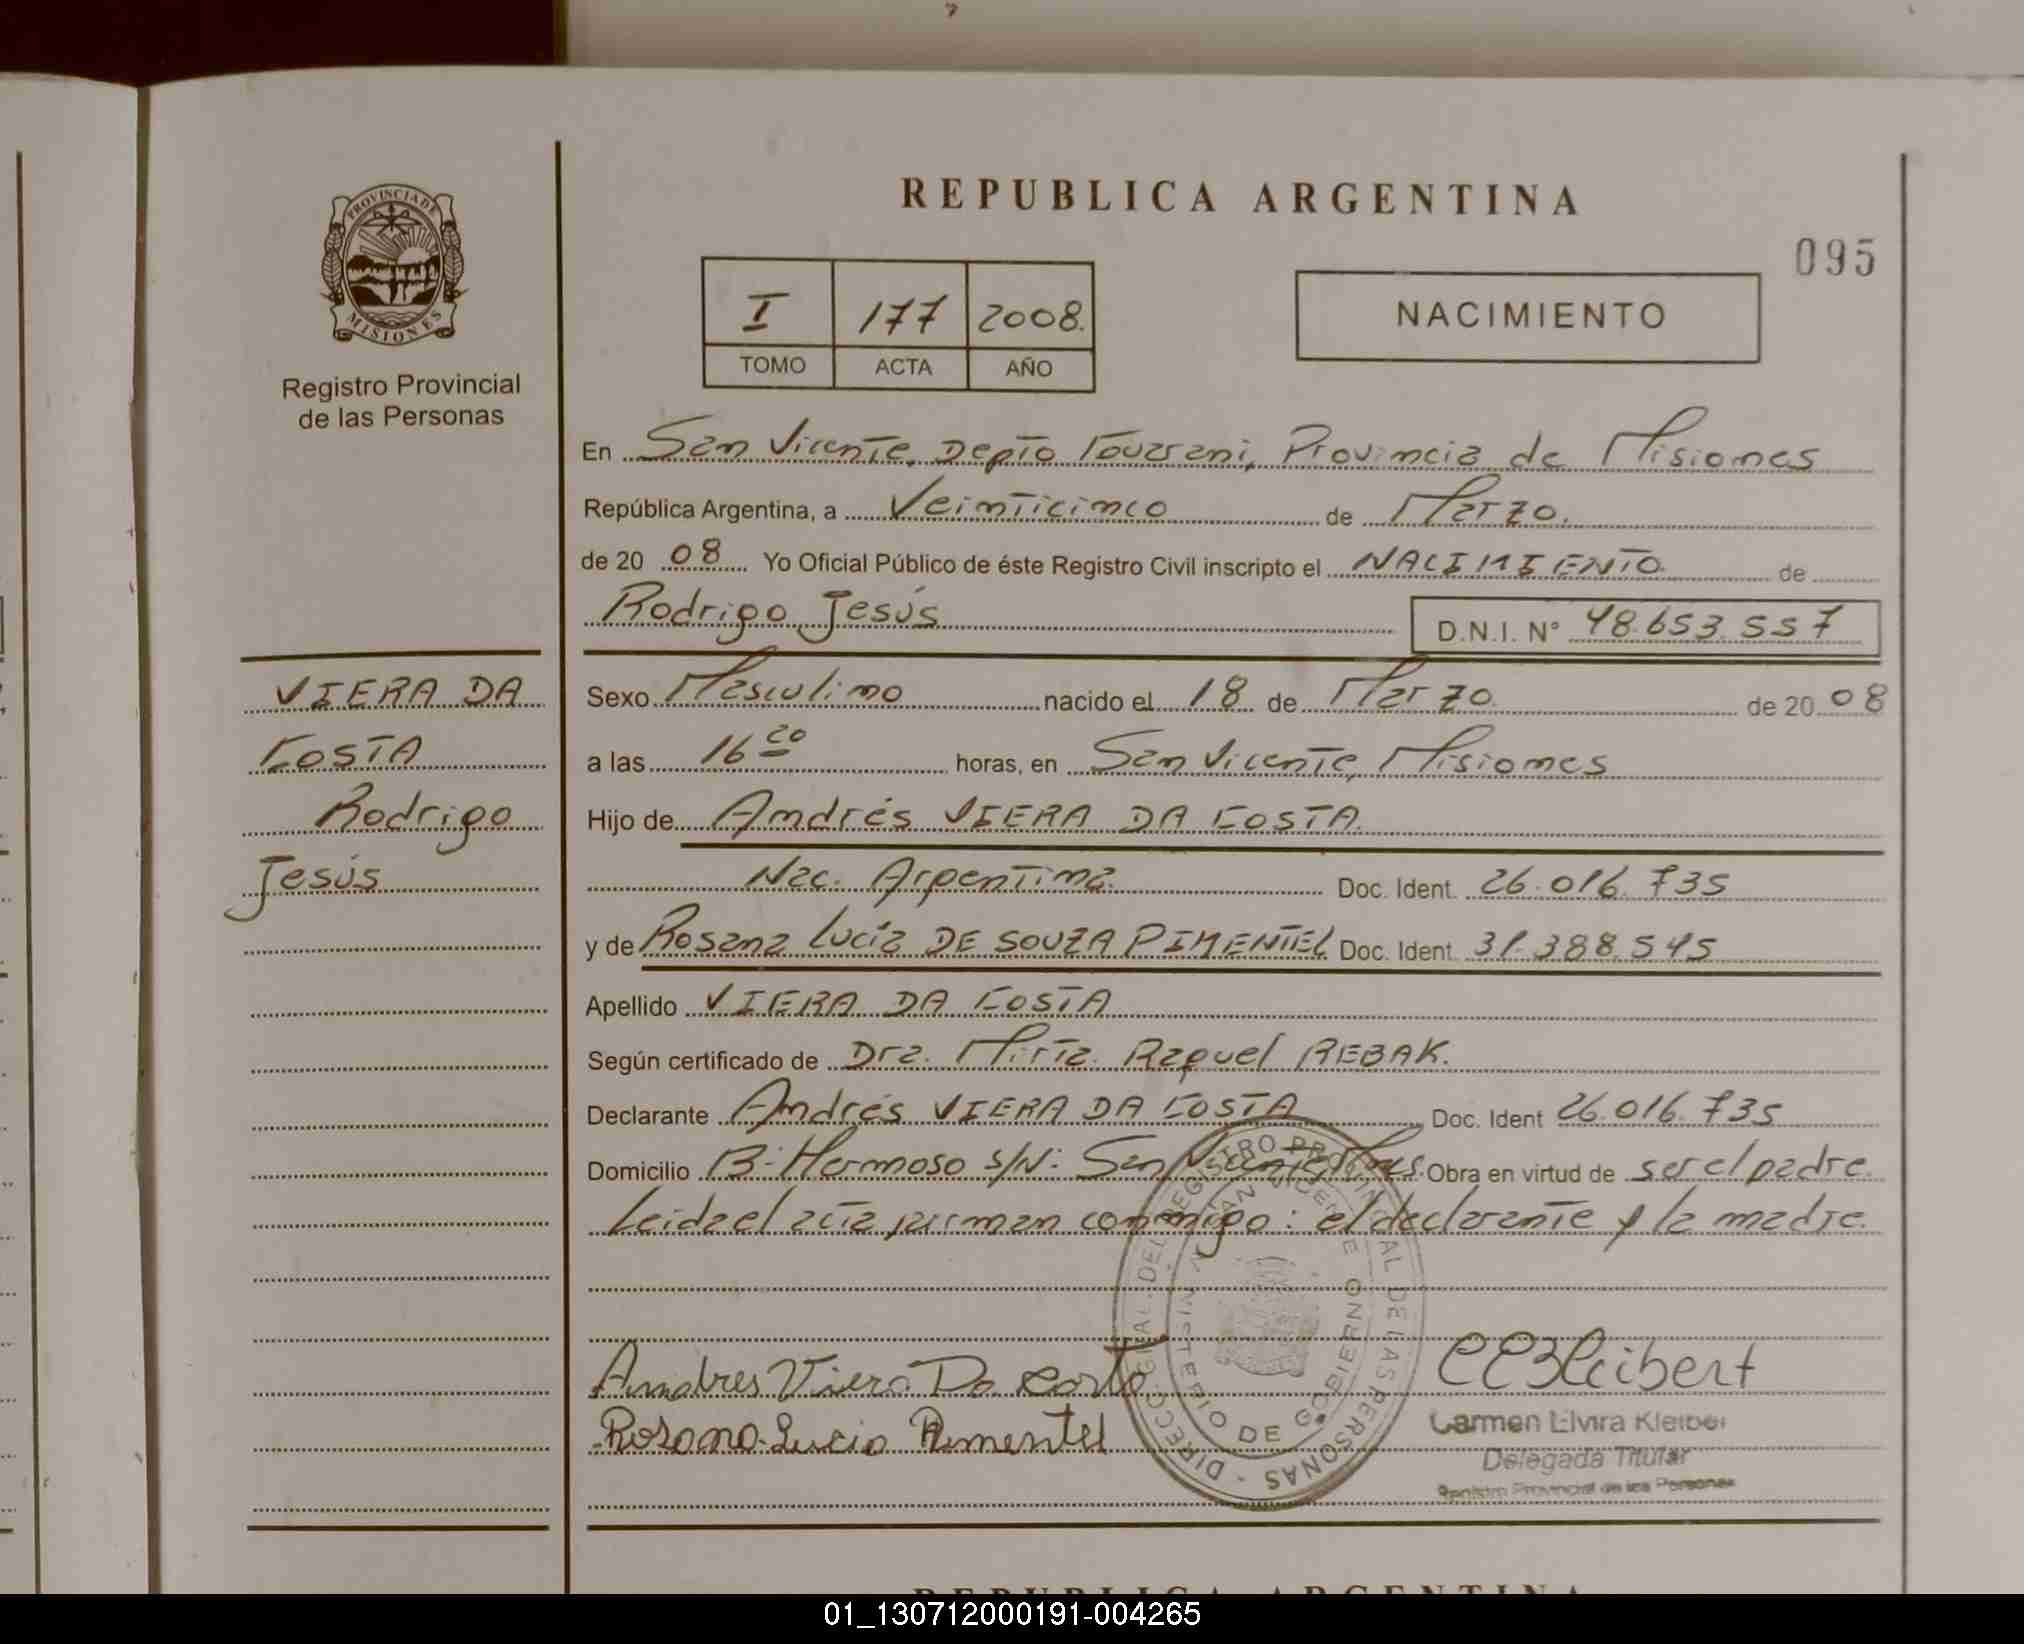 PROVINCIA DE
MISIONES
Registro Provincial
de las Personas
REPUBLICA ARGENTINA
095
I 177 2008.
TOMO ACTA AÑO
NACIMIENTO
En San Vicente, Depto Guarani, Provincia de Misiones
República Argentina, a Veinticinco de Marzo.
de 20 08 Yo Oficial Público de éste Registro Civil inscripto el NACIMIENTO de
Rodrigo Jesús D.N.I. N° 48.653.557
VIERA DA
COSTA
Rodrigo
Jesús
Sexo Masculino nacido el 18 de Marzo de 20 08
a las 16 20 horas, en San Vicente, Misiones
Hijo de Andrés VIERA DA COSTA.
Nac. Argentina. Doc. Ident. 26.016.735
y de Rosana Lucía DE SOUZA PIMENTEL Doc. Ident. 31.388.545
Apellido VIERA DA COSTA
Según certificado de Dra. Mirta Raquel REBAK.
Declarante Andrés VIERA DA COSTA Doc. Ident 26.016.735
Domicilio B: Hermoso s/N: San Vicente Mnes. Obra en virtud de ser el padre.
Leida el acta firman conmigo: el declarante y la madre.
DIRECC. GRAL. DEL REGISTRO PROVINCIAL DE LAS PERSONAS -
SAN VICENTE
MINISTERIO DE GOBIERNO
Andres Viera Da Costa
Rosana Lucia Pimentel
CEKleibert
Carmen Elvira Kleiber
Delegada Titular
Registro Provincial de las Personas
REPUBLICA ARGENTINA
01_130712000191-004265